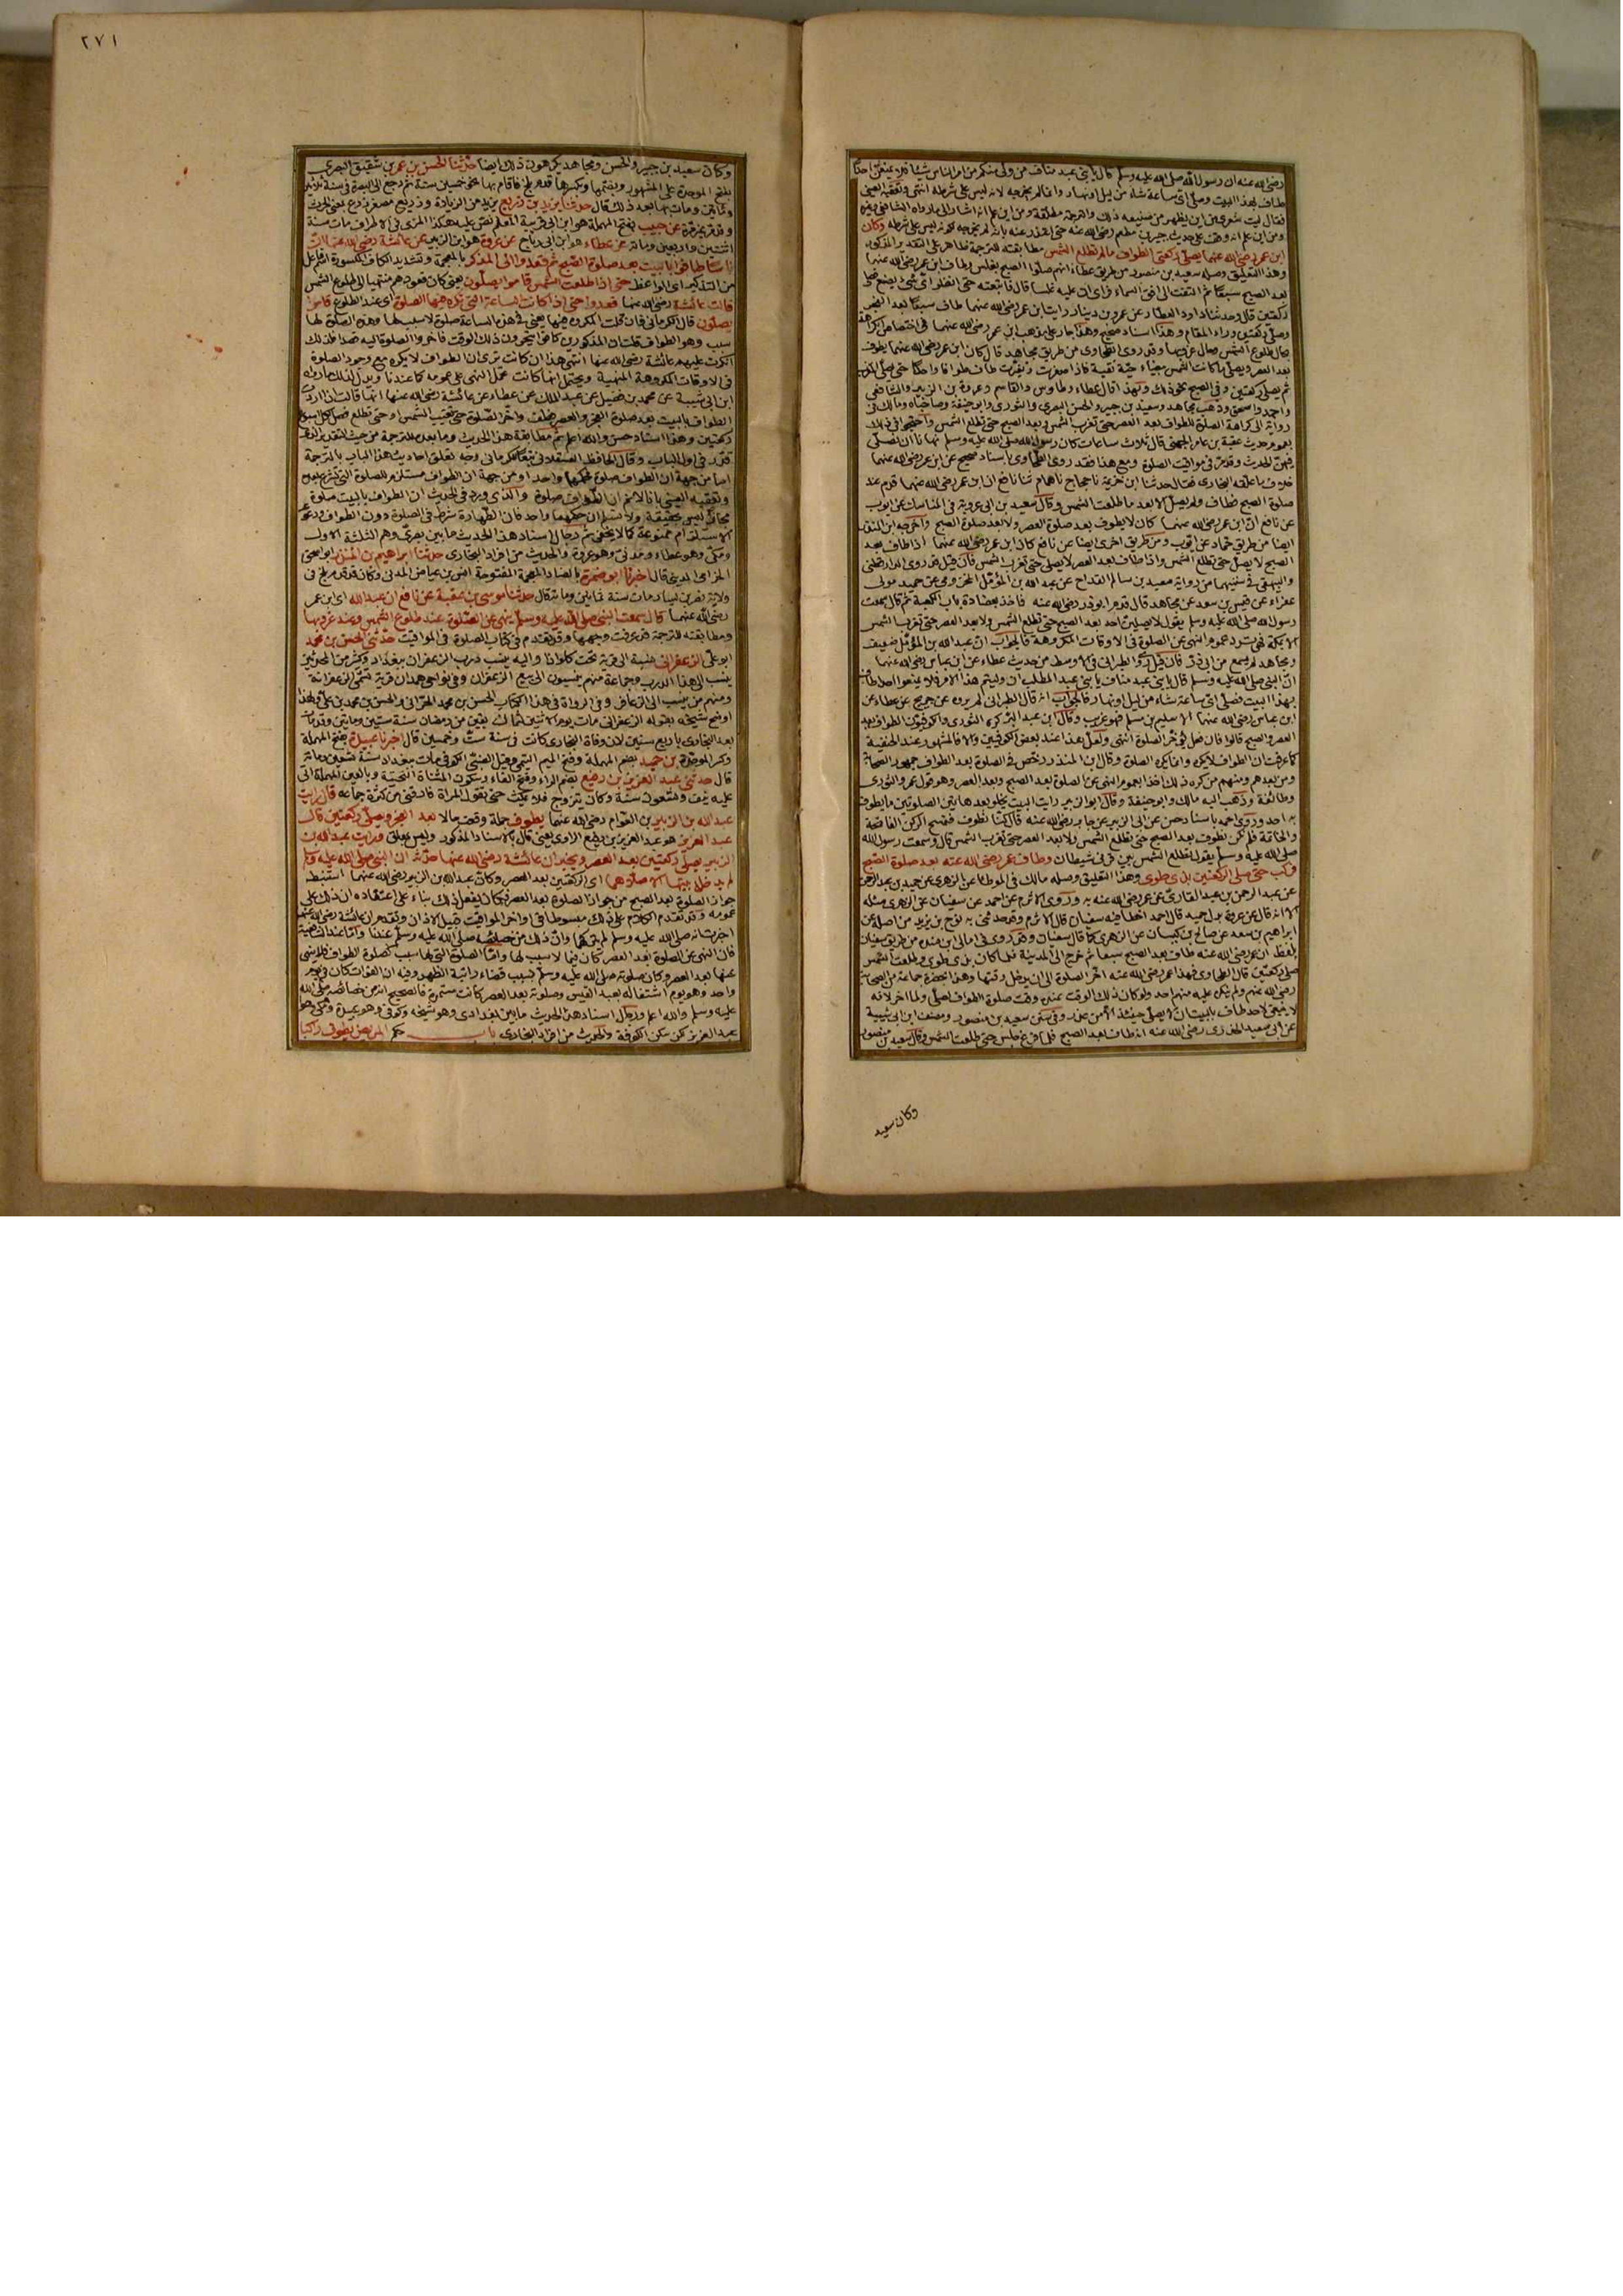 رضى الله عنه ان رسول الله صلى الله عليه وسلم قال يا بنى عبد مناف من ولى منكم من امر الناس شيئا فلا يمنعن احدا
طاف بهذا البيت وصلى اى ساعة شاء من ليل او نهار وانما لم يخرجه لانه ليس على شرطه انتهى وتعقبه العينى
فقال ليت شعرى من اين يظهر من صنيعه ذلك والترجمة مطلقة ومن اين علم انه اشار الى ما رواه الشافعى وغيره
ومن اين علم انه وقف على حديث جبير بن مطعم رضى الله عنه حتى اعتذر عنه بانه لم يخرجه لكونه ليس على شرطه وكان
ابن عمر رضى الله عنهما يصلى ركعتى الطواف ما لم تطلع الشمس مطابقته للترجمة ظاهر على التقدير المذكور
وهذا التعليق وصله سعيد بن منصور من طريق عطاء انهم صلوا الصبح بغلس وطاف ابن عمر رضى الله عنهما
بعد الصبح سبعا ثم التفت الى افق السماء فراى ان عليه غلسا قال فاتبعته حتى انظر اى شئ يصنع فصلى
ركعتين قال وحدثنا داود العطار عن عمرو بن دينار رايت ابن عمر رضى الله عنهما طاف سبعا بعد الفجر
وصلى ركعتين وراء المقام وهذا اسناد صحيح وهذا جار على مذهب ابن عمر رضى الله عنهما فى اختصاص الكراهة
بحال طلوع الشمس وحال غروبها وقد روى الطحاوى من طريق مجاهد قال كان ابن عمر رضى الله عنهما يطوف
بعد العصر ويصلى ما كانت الشمس بيضاء حية نقية فاذا اصفرت وتغيرت طاف طوافا واحدا حتى يصلى المغرب
ثم يصلى ركعتين وفى الصبح نحو ذلك وبهذا قال عطاء وطاوس والقاسم وعروة بن الزبير والشافعى
واحمد واسحق وذهب مجاهد وسعيد بن جبير والحسن البصرى والثورى وابو حنيفة وصاحباه ومالك فى
رواية الى كراهة الصلاة للطواف بعد العصر حتى تغرب الشمس وبعد الصبح حتى تطلع الشمس واحتجوا فى ذلك
بعموم حديث عقبة بن عامر الجهنى قال ثلاث ساعات كان رسول الله صلى الله عليه وسلم نهانا ان نصلى
فيهن الحديث وقد مر فى مواقيت الصلوة ومع هذا فقد روى الطحاوى باسناد صحيح عن ابن عمر رضى الله عنهما
خلاف ما علقه البخارى فقال حدثنا ابن خزيمة نا حجاج نا همام ثنا نافع ان ابن عمر رضى الله عنهما قدم عند
صلوة الصبح فطاف ولم يصل الا بعد ما طلعت الشمس وقال سعيد بن ابى عروبة فى المناسك عن ايوب
عن نافع ان ابن عمر رضى الله عنهما كان لا يطوف بعد صلوة العصر ولا بعد صلوة الصبح واخرجه ابن المنذر
ايضا من طريق حماد عن ايوب ومن طريق اخرى ايضا عن نافع كان ابن عمر رضى الله عنهما اذا طاف بعد
الصبح لا يصلى حتى تطلع الشمس واذا طاف بعد العصر لا يصلى حتى تغرب الشمس فان قيل قد روى الدارقطنى
والبيهقى فى سننهما من رواية سعيد بن سالم القداح عن عبد الله بن المؤمل المخزومى عن حميد مولى
عفراء عن قيس بن سعد عن مجاهد قال قدم ابو ذر رضى الله عنه فاخذ بعضادة باب الكعبة ثم قال سمعت
رسول الله صلى الله عليه وسلم يقول لا يصلين احد بعد الصبح حتى تطلع الشمس ولا بعد العصر حتى تغرب الشمس
الا بمكة فهى ترد عموم النهى عن الصلوة فى الاوقات المكروهة فالجواب ان عبد الله بن المؤمل ضعيف
ومجاهد لم يسمع من ابى ذر فان قيل روى الطبرانى فى الاوسط من حديث عطاء عن ابن عباس رضى الله عنهما
ان النبى صلى الله عليه وسلم قال يا بنى عبد مناف يا بنى عبد المطلب ان وليتم هذا الامر فلا تمنعوا احدا طاف
بهذا البيت فصلى اى ساعة شاء من ليل او نهار فالجواب انه قال الطبرانى لم يروه عن جريج عن عطاء عن
ابن عباس رضى الله عنهما الا سليم بن مسلم فهو غريب وقال ابن عبد البر كره الثورى والكوفيون الطواف بعد
العصر والصبح قالوا فان فعل فليؤخر الصلوة انتهى ولعل هذا عند بعض الكوفيين والا فالمشهور عند الحنفية
كما عرفت ان الطواف لا يكره وانما يكره الصلوة وقال ابن المنذر رخص فى الصلوة بعد الطواف جمهور الصحابة
ومن بعدهم ومنهم من كره ذلك اخذا بعموم النهى عن الصلوة بعد الصبح وبعد العصر وهو قول عمر والثورى
وطائفة وذهب اليه مالك وابو حنيفة وقال ابو الزبير رايت البيت يخلو بعد هاتين الصلوتين ما يطوف
به احد وروى احمد باسناد حسن عن ابى الزبير عن جابر رضى الله عنه قال كنا نطوف فنمسح الركن الفاتحة
والخاتمة فلم نكن نطوف بعد الصبح حتى تطلع الشمس ولا بعد العصر حتى تغرب الشمس قال وسمعت رسول الله
صلى الله عليه وسلم يقول تطلع الشمس بين قرنى شيطان وطاف عمر رضى الله عنه بعد صلوة الصبح
فركب حتى صلى الركعتين بذى طوى وهذا التعليق وصله مالك فى الموطا عن الزهرى عن حميد بن عبد الرحمن
عن عبد الرحمن بن عبد القارى عن عمر رضى الله عنه به وروى الاثرم عن احمد عن سفيان عن الزهرى مثله
الا انه قال عن عروة بدل حميد قال احمد اخطا فيه سفيان قال الاثرم وقد حدثنى به نوح بن يزيد من اصله عن
ابراهيم بن سعد عن صالح بن كيسان عن الزهرى كما قال سفيان وقد روى فى امالى ابن منده من طريق سفيان
بلفظ ان عمر رضى الله عنه طاف بعد الصبح سبعا ثم خرج الى المدينة فلما كان بذى طوى وطلعت الشمس
صلى ركعتين قال الطحاوى فهذا عمر رضى الله عنه اخر الصلوة الى ان يدخل وقتها وهذا بحضرة جماعة من الصحابة
رضى الله عنهم ولم ينكره عليه منهم احد ولو كان ذلك الوقت عنده وقت صلوة الطواف لصلى ولما اخر لانه
لا ينبغى لاحد طاف بالبيت ان لا يصلى حينئذ الا من عذر وفى سنن سعيد بن منصور ومصنف ابن ابى شيبة
عن ابى سعيد الخدرى رضى الله عنه انه طاف بعد الصبح فلما فرغ جلس حتى طلعت الشمس وقال سعيد بن منصور
وكان سعيد
٢٧١
وكان سعيد بن جبير والحسن ومجاهد يكرهون ذلك ايضا حدثنا الحسن بن عمر بن شقيق البصرى
بفتح الموحدة على المشهور وبضمها وكسرها قدم بلخ فاقام بها نحو خمسين سنة ثم رجع الى البصرة فى سنة ثلاثين
ومائتين ومات بها بعد ذلك قال حدثنا يزيد بن زريع يزيد من الزيادة وزريع مصغر زرع بمعنى الحرث
وقد مر غير مرة عن حبيب بفتح المهملة هو ابن ابى قريبة المعلم نص عليه هكذا المزى فى الاطراف مات سنة
اثنتين واربعين ومائة عن عطاء هو ابن ابى رباح عن عروة هو ابن الزبير عن عائشة رضى الله عنها ان
ناسا طافوا بالبيت بعد صلوة الصبح ثم قعدوا الى المذكر بالمعجمة وتشديد الكاف المكسورة اسم فاعل
من التذكير اى الواعظ حتى اذا طلعت الشمس قاموا يصلون يعنى كان قعودهم منتهيا الى طلوع الشمس
فقالت عائشة رضى الله عنها قعدوا حتى اذا كانت الساعة التى تكره فيها الصلوة اى عند الطلوع قاموا
يصلون قال الكرمانى فان قلت المكروه فيها يعنى فى هذه الساعة صلوة لا سبب لها وهذه الصلوة لها
سبب وهو الطواف قلت ان المذكورين كانوا يتحرون ذلك الوقت فاخروا الصلوة اليه قصدا فلذلك
انكرت عليهم عائشة رضى الله عنها انتهى هذا ان كانت ترى ان الطواف لا يكره مع وجود الصلوة
فى الاوقات المكروهة المنهية ويحتمل انها كانت تحمل النهى على عمومه كما عندنا ويدل لذلك ما رواه
ابن ابى شيبة عن محمد بن فضيل عن عبد الملك عن عطاء عن عائشة رضى الله عنها انها قالت ان اردت
الطواف بالبيت بعد صلوة الفجر والعصر فطف واخر الصلوة حتى تغيب الشمس او حتى تطلع فصل لكل اسبوع
ركعتين وهذا اسناد حسن والله اعلم ثم مطابقة هذا الحديث وما بعده للترجمة من حيث التقدير الذى
قدر فى اول الباب وقال الحافظ العسقلانى تبعا للكرمانى وجه تعلق احاديث هذا الباب بالترجمة
اما من جهة ان الطواف صلوة فحكمهما واحد او من جهة ان الطواف مستلزم للصلوة التى تشرع بعده
وتعقبه العينى بانا لا نسلم ان الطواف صلوة والذى ورد فى الحديث ان الطواف بالبيت صلوة
مجاز ليس بحقيقة ولا نسلم ان حكمهما واحد فان الطهارة شرط فى الصلوة دون الطواف ودعوى
الاستلزام ممنوعة كما لا يخفى ثم رجال اسناد هذا الحديث ما بين بصرى وهم الثلثة الاول
ومكى وهو عطاء ومدنى وهو عروة والحديث من افراد البخارى حدثنا ابراهيم بن المنذر ابو اسحق
الحزامى المدينى قال اخبرنا ابو ضمرة بالضاد المعجمة المفتوحة انس بن عياض المدنى وكان قد قدم بلخ فى
ولاية نصر بن سيار مات سنة ثمانين ومائة قال حدثنا موسى بن عقبة عن نافع ان عبد الله اى ابن عمر
رضى الله عنهما قال سمعت النبى صلى الله عليه وسلم ينهى عن الصلوة عند طلوع الشمس وعند غروبها
ومطابقته للترجمة قد عرفت وجهها وقد تقدم فى كتاب الصلوة فى المواقيت حدثنى الحسن بن محمد
ابو على الزعفرانى نسبة الى قرية تحت كلواذا واليه ينسب درب الزعفران ببغداد وكثير من المحدثين
ينسب الى هذا الدرب وجماعة منهم ينسبون الى بيع الزعفران وفى نواحى همدان قرية تسمى الزعفرانة
ومنهم من ينسب الى الزعافر وفى الرواة فى هذا الكتاب الحسن بن محمد الحرانى والحسن بن محمد بن على ولهذا
اوضح شيخه بقوله الزعفرانى مات يوم الاثنين لثمان بقين من رمضان سنة ستين ومائتين وقد مات
بعد البخارى باربع سنين لان وفاة البخارى كانت فى سنة ست وخمسين قال اخبرنا عبيدة بفتح المهملة
وكسر الموحدة بن حميد بضم المهملة وفتح الميم التيمى وقيل الضبى الكوفى مات ببغداد سنة تسعين ومائة
قال حدثنى عبد العزيز بن رفيع بضم الراء وفتح الفاء وسكون المثناة التحتية وبالعين المهملة اتى
عليه نيف وتسعون سنة وكان يتزوج فلا يمكث حتى تقول المراة فارقنى من كثرة جماعه قال رايت
عبد الله بن الزبير بن العوام رضى الله عنهما يطوف جملة وقعت حالا بعد الفجر ويصلى ركعتين قال
عبد العزيز هو عبد العزيز بن رفيع الراوى يعنى قال بالاسناد المذكور وليس بمعلق ورايت عبد الله بن
الزبير يصلى ركعتين بعد العصر ويخبر ان عائشة رضى الله عنها حدثته ان النبى صلى الله عليه وسلم
لم يدخل بيتها الا صلاهما اى الركعتين بعد العصر وكان عبد الله بن الزبير رضى الله عنهما استنبط
جواز الصلوة بعد الصبح من جواز الصلوة بعد العصر فكان يفعل ذلك بناء على اعتقاده ان ذلك على
عمومه وقد تقدم الكلام على ذلك مبسوطا فى اواخر المواقيت قبيل الاذان وتقدم ان عائشة رضى الله عنها
اخبرت انه صلى الله عليه وسلم لم يتركهما وان ذلك من خصائصه صلى الله عليه وسلم عندنا واما عند الشافعية
فان النهى عن الصلوة بعد العصر كان فيما لا سبب لها واما الصلوة التى لها سبب كصلوة الطواف فلا ينهى
عنها بعد العصر وكان صلوته صلى الله عليه وسلم بسبب قضاء راتبة الظهر وفيه ان الفوات كان فى يوم
واحد وهو يوم اشتغاله بعبد القيس وصلوته بعد العصر كانت مستمرة فالصحيح انه من خصائصه صلى الله
عليه وسلم والله اعلم ورجال اسناد هذا الحديث ما بين بغدادى وهو شيخه وكوفى وهو عبيدة ومكى وهو
عبد العزيز لكن سكن الكوفة والحديث من افراد البخارى باب حكم المريض يطوف راكبا